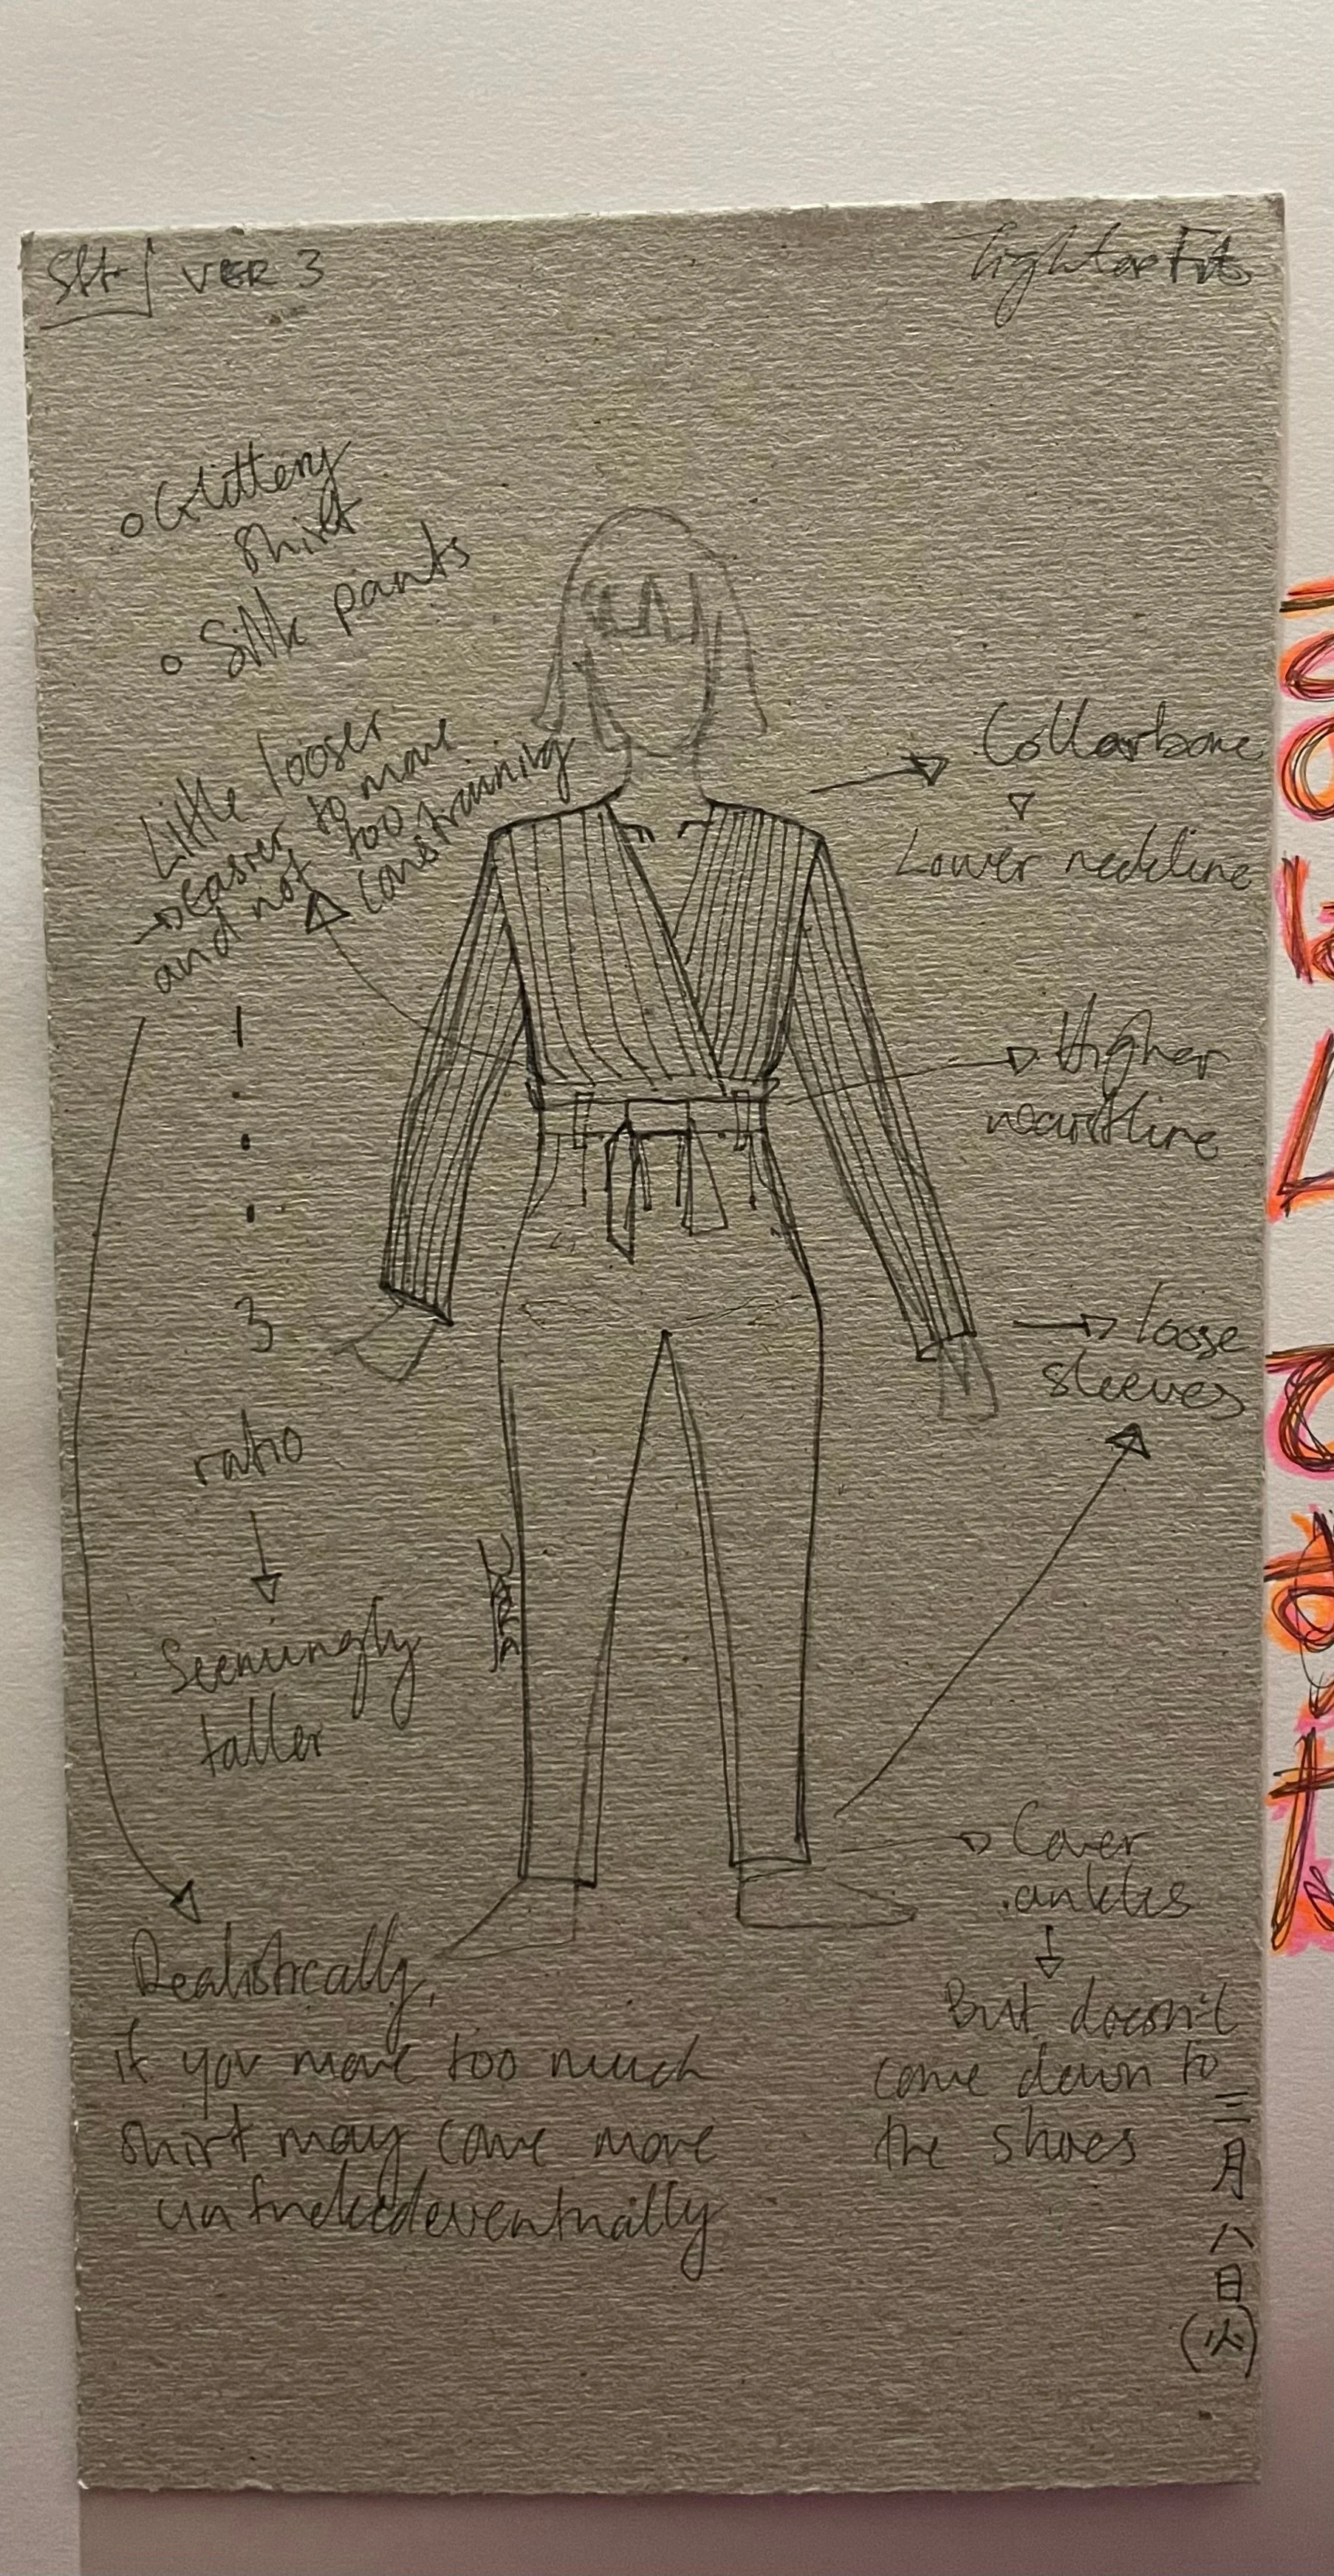 VER 3
Tighter Fit
o Glittery
shirt
o Silk pants
Little looser
→ easier to move
and not too
constraining
1
3
ratio
Seemingly
taller
Realistically,
if you move too much
shirt may come more
untucked eventually
Collarbone
Lower neckline
Higher
waistline
loose
sleeves
Cover
ankles
But doesn't
come down to
the shoes
三月八日(火)